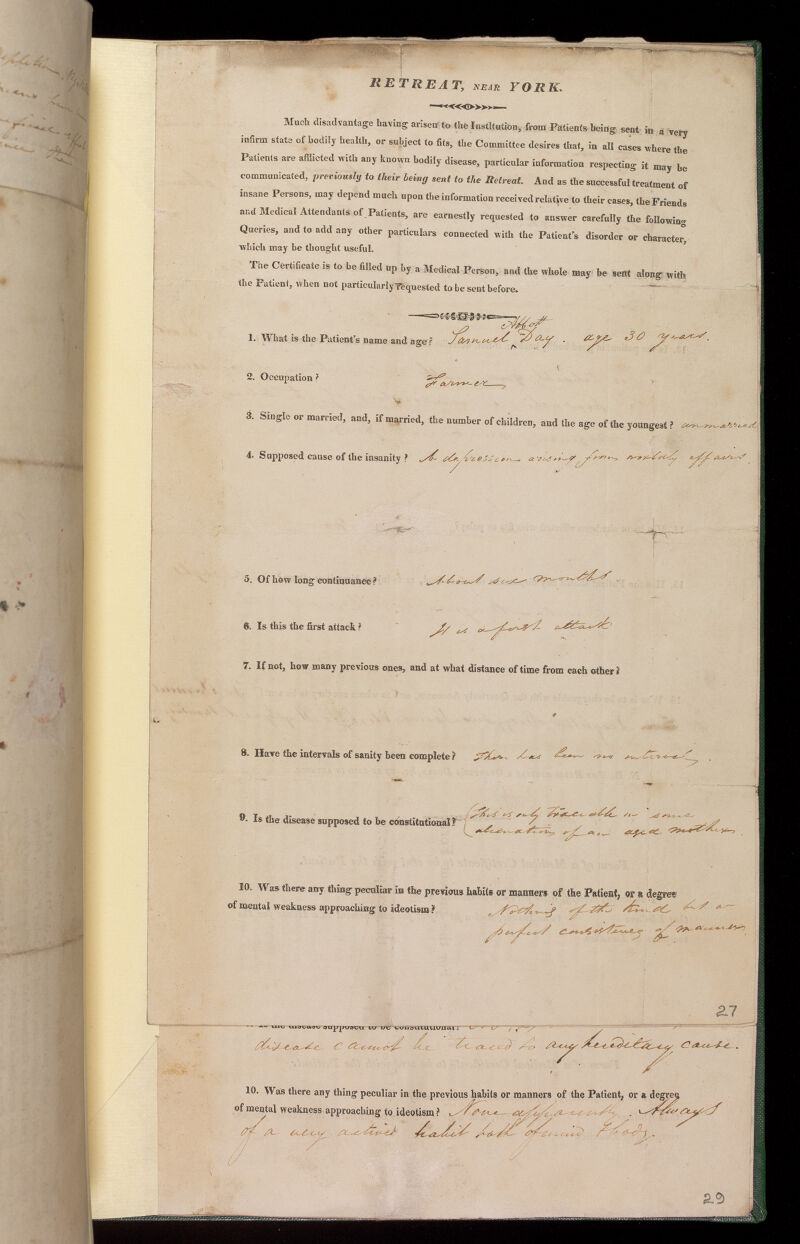 RETREAT, NEAR YORK.
Much disadvantage having arisen to the Institution, from Patients being sent in a very
infirm state of bodily health, or subject to fits, the Committee desires that, in all cases where the
Patients are afflicted with any known bodily disease, particular information respecting it may be
communicated, previously to their being sent to the Retreat. And as the successful treatment of
insane Persons, may depend much upon the information received relative to their cases, the Friends
and Medical Attendants of Patients, are earnestly requested to answer carefully the following
Queries, and to add any other particulars connected with the Patient's disorder or character,
which may be thought useful.
The Certificate is to be filled up by a Medical Person, and the whole may be sent along with
the Patient, when not particularly requested to be sent before.
1. What is the Patient's name and age? Samuel Day . age 30 years.
2. Occupation? Farmer
3. Single or married, and, if married, the number of children, and the age of the youngest? unmarried
4. Supposed cause of the insanity? A depression arising from worldly affairs.
5. Of how long continuance? About six months
6. Is this the first attack? It is a first attack
7. If not, how many previous ones, and at what distance of time from each other?
8. Have the intervals of sanity been complete? There has been no interval .
9. Is the disease supposed to be constitutional? This is only traceable in some
alienation of an aged mother.
10. Was there any thing peculiar in the previous habits or manners of the Patient, or a degree
of mental weakness approaching to ideotism? Nothing of the kind but a
perfect consistency of manners.
27
disease supposed to be constitutional?
disease cannot be traced to any hereditary cause.
10. Was there any thing peculiar in the previous habits or manners of the Patient, or a degree
of mental weakness approaching to ideotism? None apparently . Always
of a very active habit both of mind & body.
29